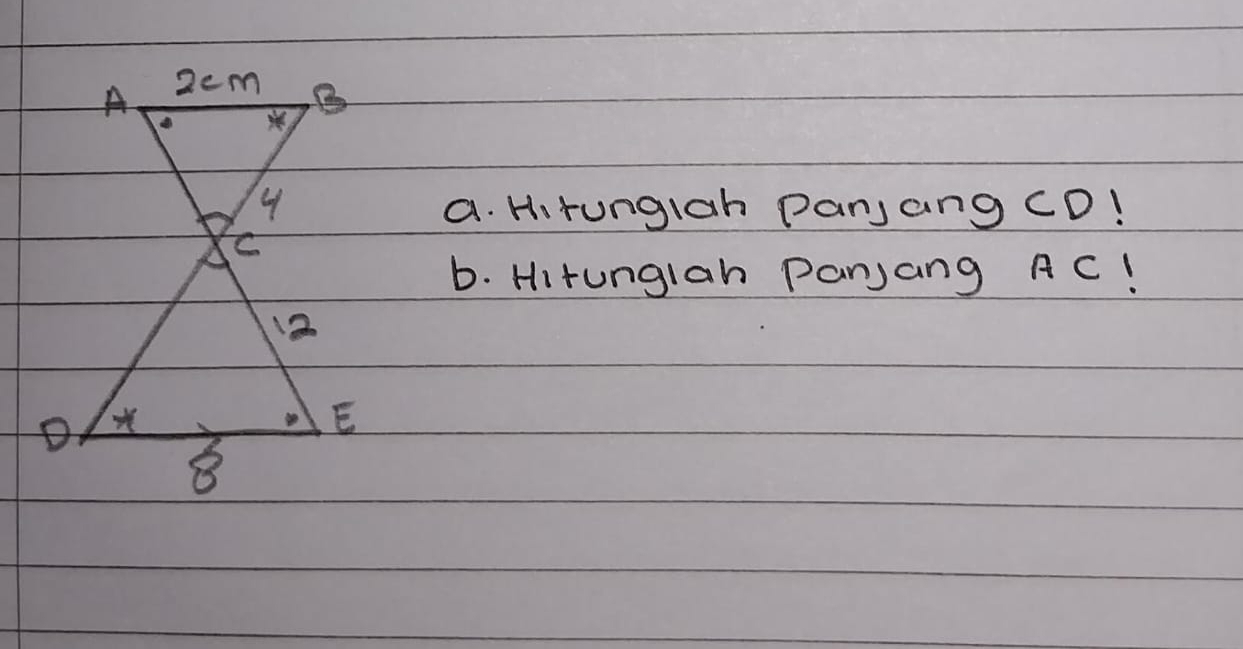 2cm
A B
4
a. Hitunglah Panjang CD!
C
b. Hitunglah Panjang AC!
12
D E
8